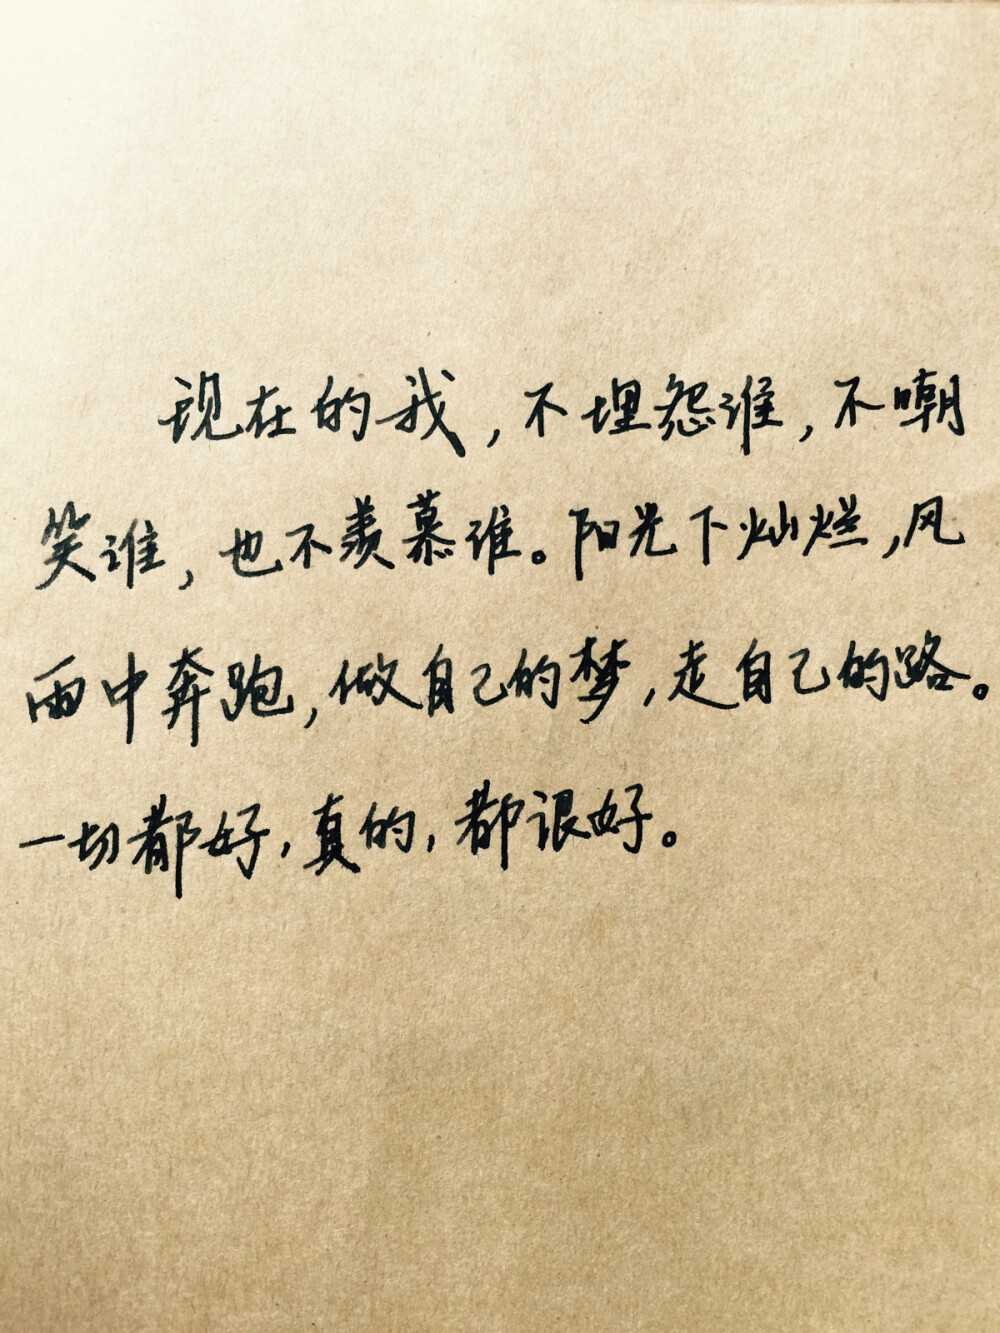 现在的我,不埋怨谁,不嘲
笑谁,也不羡慕谁。阳光下灿烂,风
雨中奔跑,做自己的梦,走自己的路。
一切都好,真的,都很好。